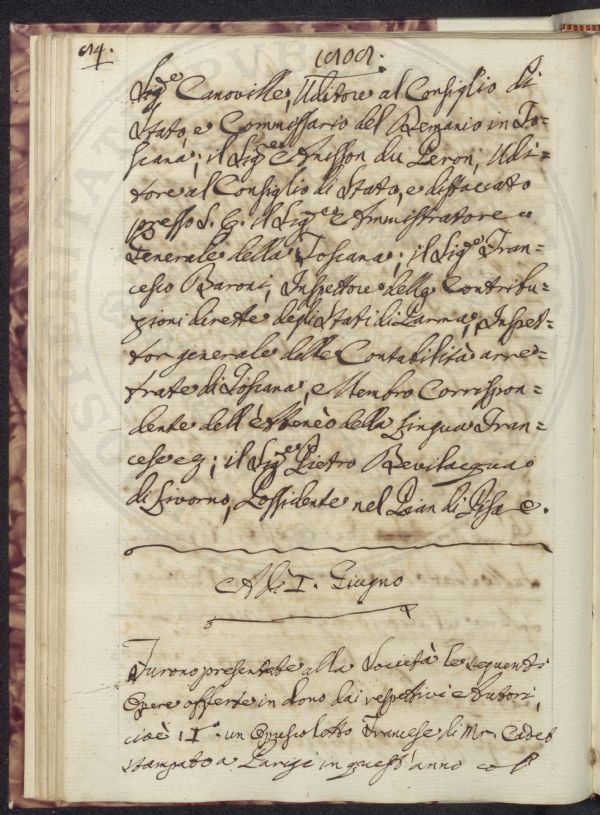 1808.
Sig.e Canoville, Uditore al Consiglio di
Stato, e Commissario del Demanio in To=
scana; il Sig.e Anisson du Peron, Udi=
tore al Consiglio di Stato, e distaccato
presso S. E. il Sig.e Amministratore
Generale della Toscana; il Sig.e Fran=
cesco Baroni, Inspettore delle Contribu=
zioni dirette degli Stati di Parma, Inspet=
tor generale delle Contabilità arre=
trate di Toscana, e Membro Corrispon=
dente dell'Ateneo della Lingua Fran=
cese; il Sig.e Pietro Bevilacqua
di Livorno, Possidente nel Pian di Pisa.
A dì I. Giugno
Furono presentate alla Società le seguenti
Opere offerte in dono dai respettivi Autori,
cioè: I.o un Opuscoletto Francese di Mr. Cadet
stampato a Parigi in quest'anno